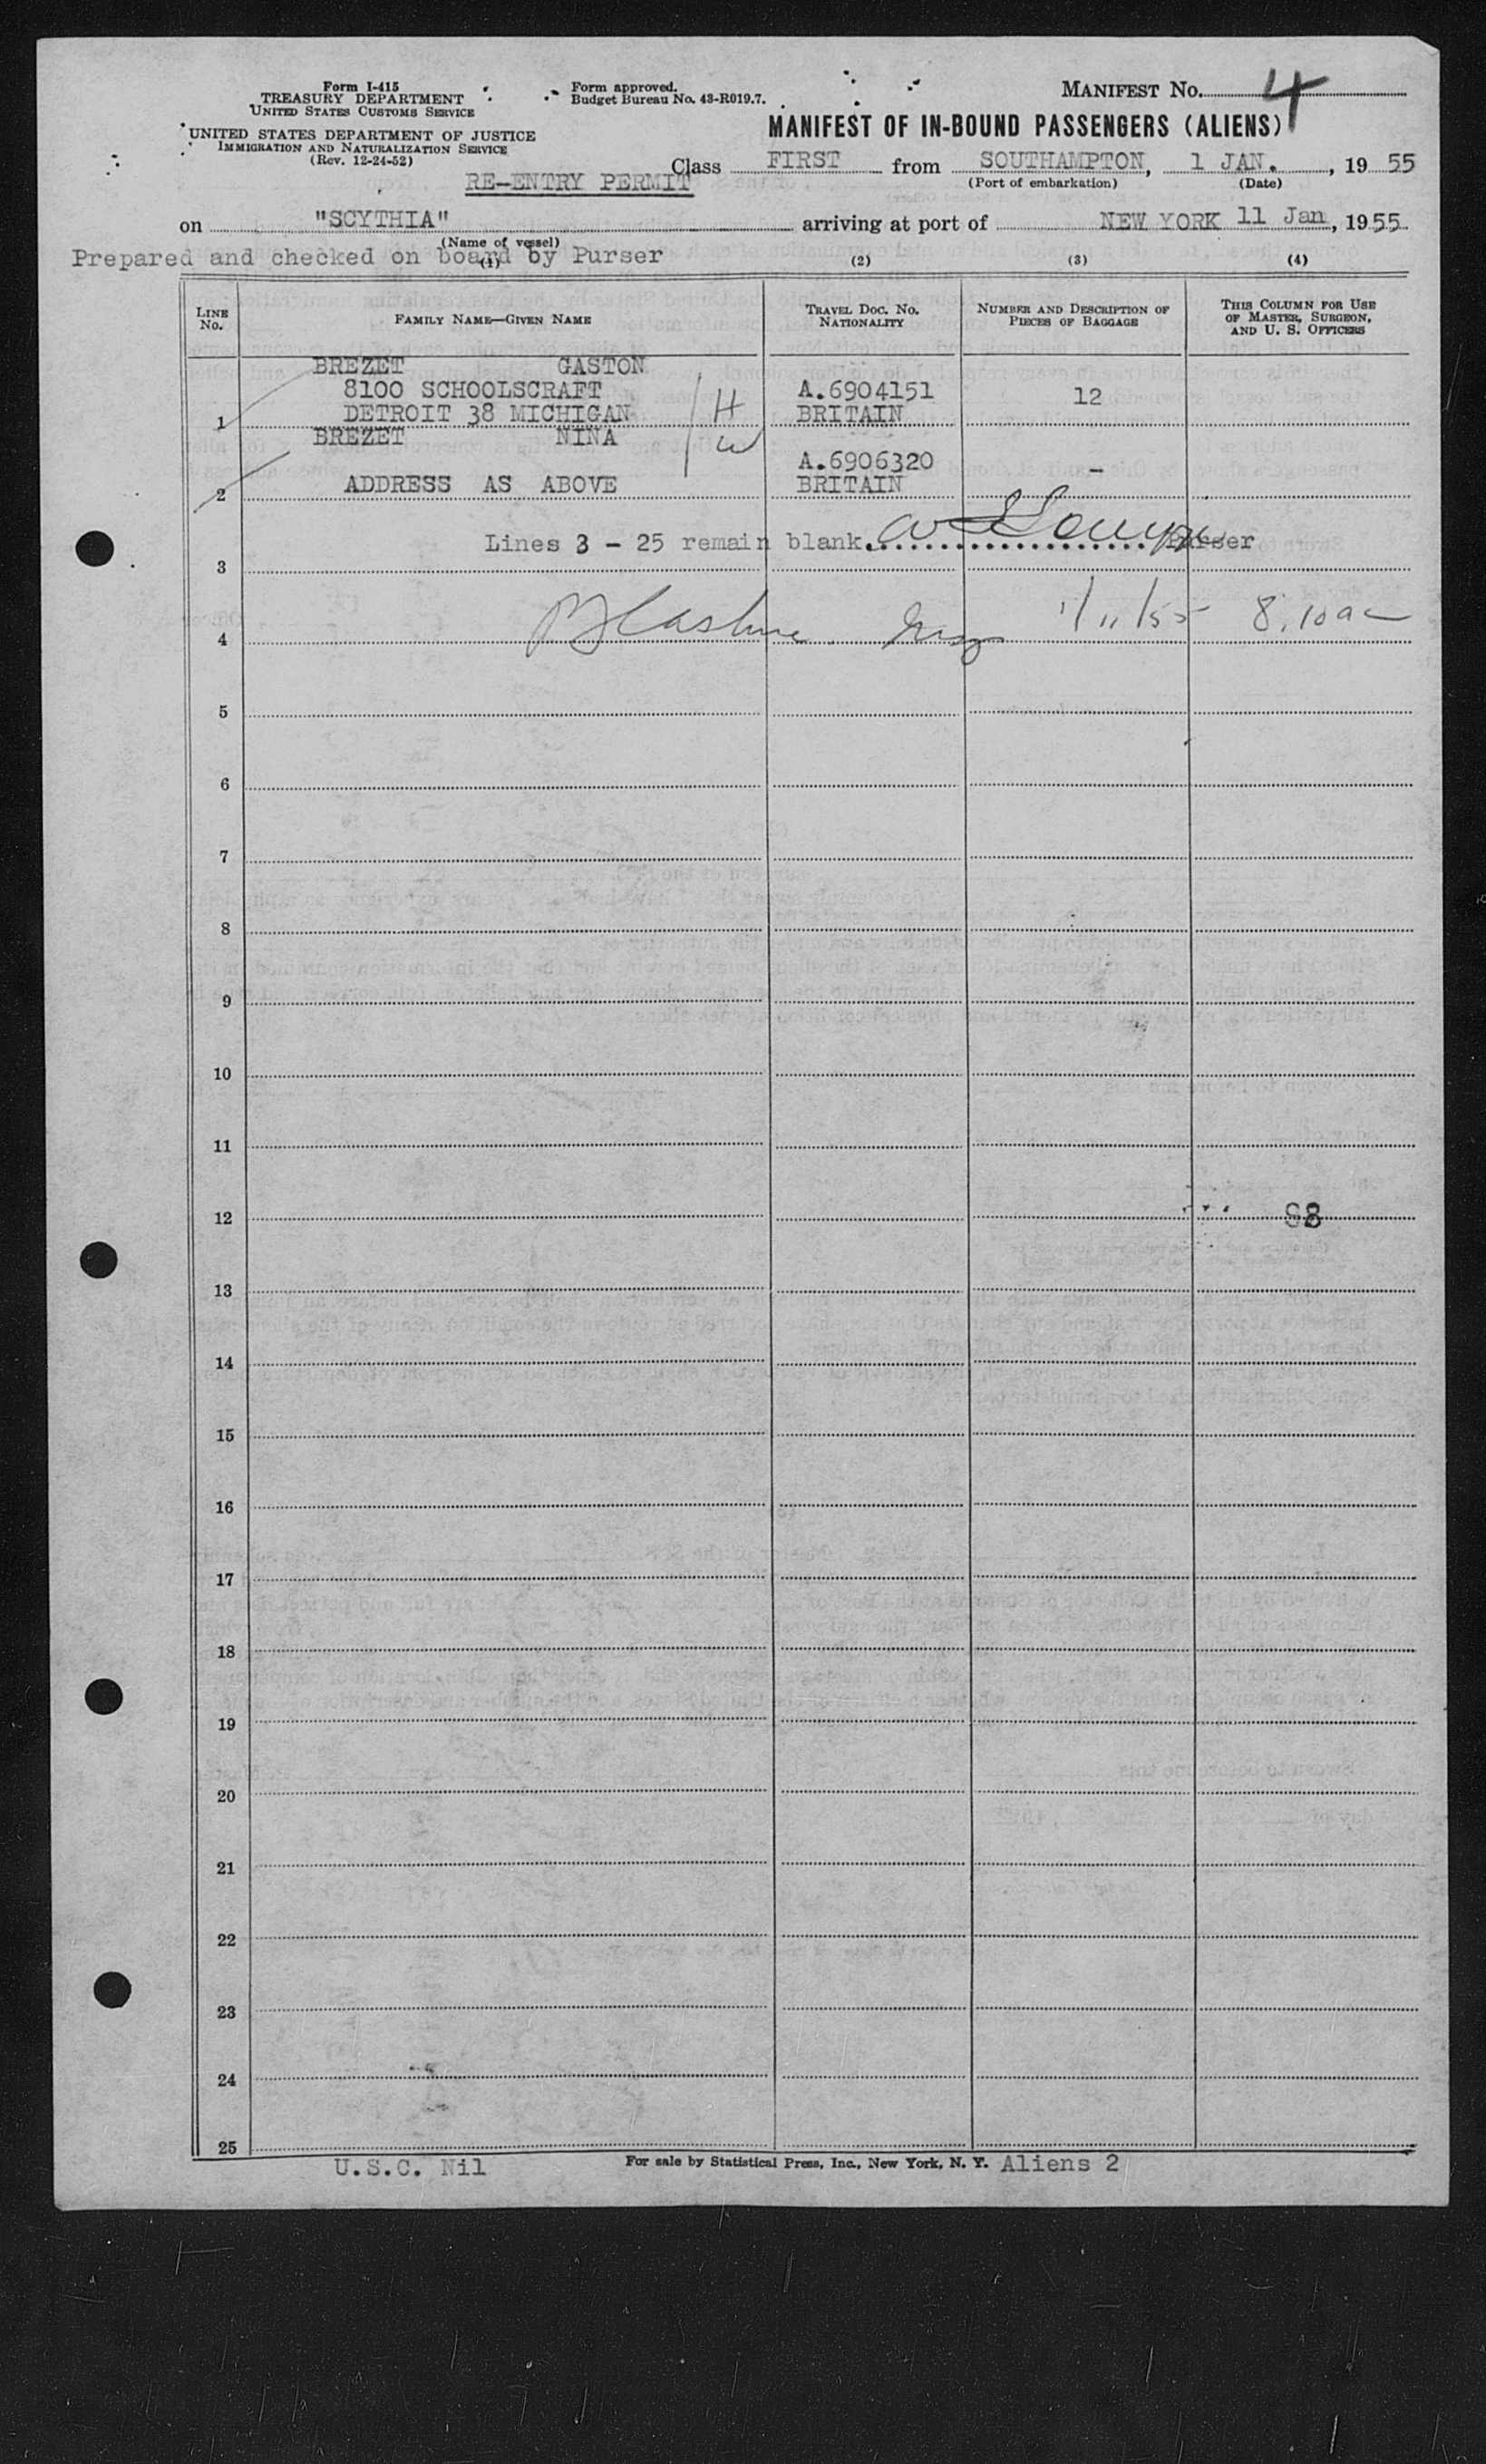 Form I-415
TREASURY DEPARTMENT
UNITED STATES CUSTOMS SERVICE
UNITED STATES DEPARTMENT OF JUSTICE
IMMIGRATION AND NATURALIZATION SERVICE
(Rev. 12-24-52)
Form approved.
Budget Bureau No. 43-R019.7.
MANIFEST No. 4
MANIFEST OF IN-BOUND PASSENGERS (ALIENS)
RE-ENTRY PERMIT
Class FIRST from SOUTHAMPTON, 1 JAN., 1955
(Port of embarkation) (Date)
on "SCYTHIA" arriving at port of NEW YORK 11 Jan, 1955
(Name of vessel)
Prepared and checked on board by Purser
(1) (2) (3) (4)
LINE No. FAMILY NAME—GIVEN NAME TRAVEL DOC. NO. NATIONALITY NUMBER AND DESCRIPTION OF PIECES OF BAGGAGE THIS COLUMN FOR USE OF MASTER, SURGEON, AND U. S. OFFICERS
BREZET GASTON
8100 SCHOOLSCRAFT H A.6904151 12
1 DETROIT 38 MICHIGAN BRITAIN
BREZET NINA W
A.6906320 -
2 ADDRESS AS ABOVE BRITAIN
Lines 3 - 25 remain blank. Purser
3
4 1/11/55 8.10 am
5
6
7
8
9
10
11
12 88
13
14
15
16
17
18
19
20
21
22
23
24
25
U.S.C. Nil For sale by Statistical Press, Inc., New York, N. Y. Aliens 2